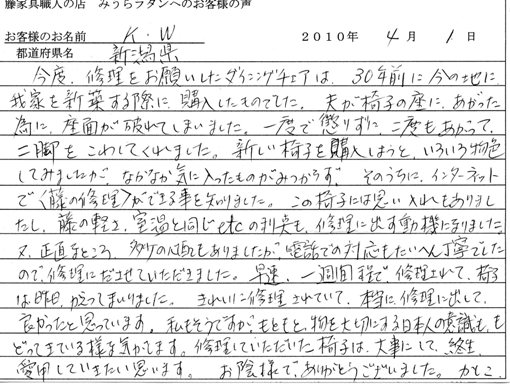 藤家具職人の店　みつらフタンへのお客様の声
お客様のお名前　K・W　2010年　4月　1日
都道府県名　新潟県
今度、修理をお願いしたダイニングチェアは、30年前に今の地に
我家を新築する際に、購入したものでした。夫が椅子の座に、あがった
為に、座面が破れてしまいました。一度で懲りずに、二度もあがって、
二脚をこわしてくれました。新しい椅子を購入しようと、いろいろ物色
してみましたが、なかなか気に入ったものがみつからず、そのうちに、インターネット
で〈藤の修理〉ができる事を知りました。この椅子には思い入れもありまし
たし、藤の軽さ、室温と同じetcの利点も、修理に出す動機になりました。
又、正直なところ、多少の心配もありましたが、電話での対応もたいへん丁寧でした
ので、修理にださせていただきました。早速、一週間程で、修理されて、椅子
は昨日、かえってまいりました。きれいに修理されていて、本当に、修理に出して、
良かったと思っています。私もそうですが、もともと、物を大切にする日本人の意識も、も
どってきている様な気がします。修理していただいた椅子は、大事にして、終生、
愛用していきたい思います。お陰様で、ありがとうございました。かしこ